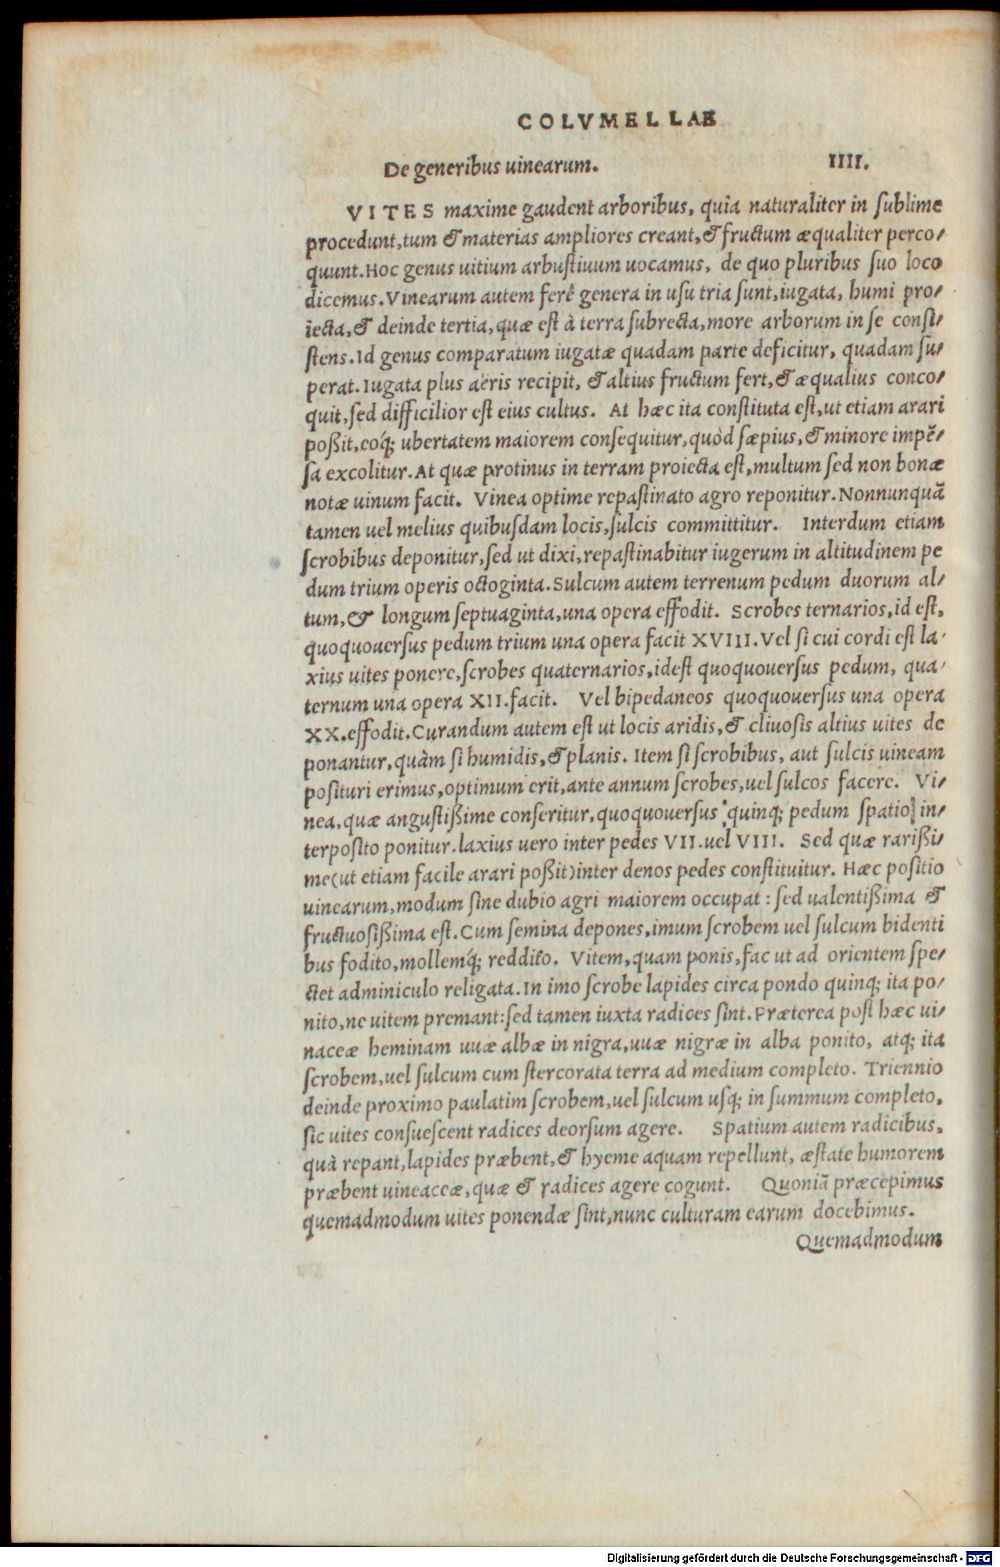 COLVMELLAE
De generibus uinearum. IIII.
VITES maxime gaudent arboribus, quia naturaliter in sublime
procedunt, tum & materias ampliores creant, & fructum æqualiter perco/
quunt. Hoc genus uitium arbustiuum uocamus, de quo pluribus suo loco
dicemus. Vinearum autem ferè genera in usu tria sunt, iugata, humi pro/
iecta, & deinde tertia, quæ est à terra subrecta, more arborum in se consi/
stens. Id genus comparatum iugatæ quadam parte deficitur, quadam su/
perat. Iugata plus aëris recipit, & altius fructum fert, & æqualius conco/
quit, sed difficilior est eius cultus. At hæc ita constituta est, ut etiam arari
poßit, eoq; ubertatem maiorem consequitur, quòd sæpius, & minore impẽ/
sa excolitur. At quæ protinus in terram proiecta est, multum sed non bonæ
notæ uinum facit. Vinea optime repastinato agro reponitur. Nonnunquã
tamen uel melius quibusdam locis, sulcis committitur. Interdum etiam
scrobibus deponitur, sed ut dixi, repastinabitur iugerum in altitudinem pe
dum trium operis octoginta. Sulcum autem terrenum pedum duorum al/
tum, & longum septuaginta, una opera effodit. Scrobes ternarios, id est,
quoquouersus pedum trium una opera facit XVIII. Vel si cui cordi est la/
xius uites ponere, scrobes quaternarios, idest quoquouersus pedum, qua/
ternum una opera XII. facit. Vel bipedaneos quoquouersus una opera
XX. effodit. Curandum autem est ut locis aridis, & cliuosis altius uites de
ponantur, quàm si humidis, & planis. Item si scrobibus, aut sulcis uineam
posituri erimus, optimum erit, ante annum scrobes, uel sulcos facere. Vi/
nea, quæ angustißime conseritur, quoquouersus quinq; pedum spatio in/
terposito ponitur. laxius uero inter pedes VII. uel VIII. Sed quæ rarißi/
me (ut etiam facile arari poßit) inter denos pedes constituitur. Hæc positio
uinearum, modum sine dubio agri maiorem occupat : sed ualentißima &
fructuosißima est. Cum semina depones, imum scrobem uel sulcum bidenti
bus fodito, mollemq́; reddito. Vitem, quam ponis, fac ut ad orientem spe/
ctet adminiculo religata. In imo scrobe lapides circa pondo quinq; ita po/
nito, ne uitem premant: sed tamen iuxta radices sint. Præterea post hæc ui/
naceæ heminam uuæ albæ in nigra, uuæ nigræ in alba ponito, atq; ita
scrobem, uel sulcum cum stercorata terra ad medium completo. Triennio
deinde proximo paulatim scrobem, uel sulcum usq; in summum completo,
sic uites consuescent radices deorsum agere. Spatium autem radicibus,
quà repant, lapides præbent, & hyeme aquam repellunt, æstate humorem
præbent uineaceæ, quæ & radices agere cogunt. Quoniã præcepimus
quemadmodum uites ponendæ sint, nunc culturam earum docebimus.
Quemadmodum
Digitalisierung gefördert durch die Deutsche Forschungsgemeinschaft - DFG